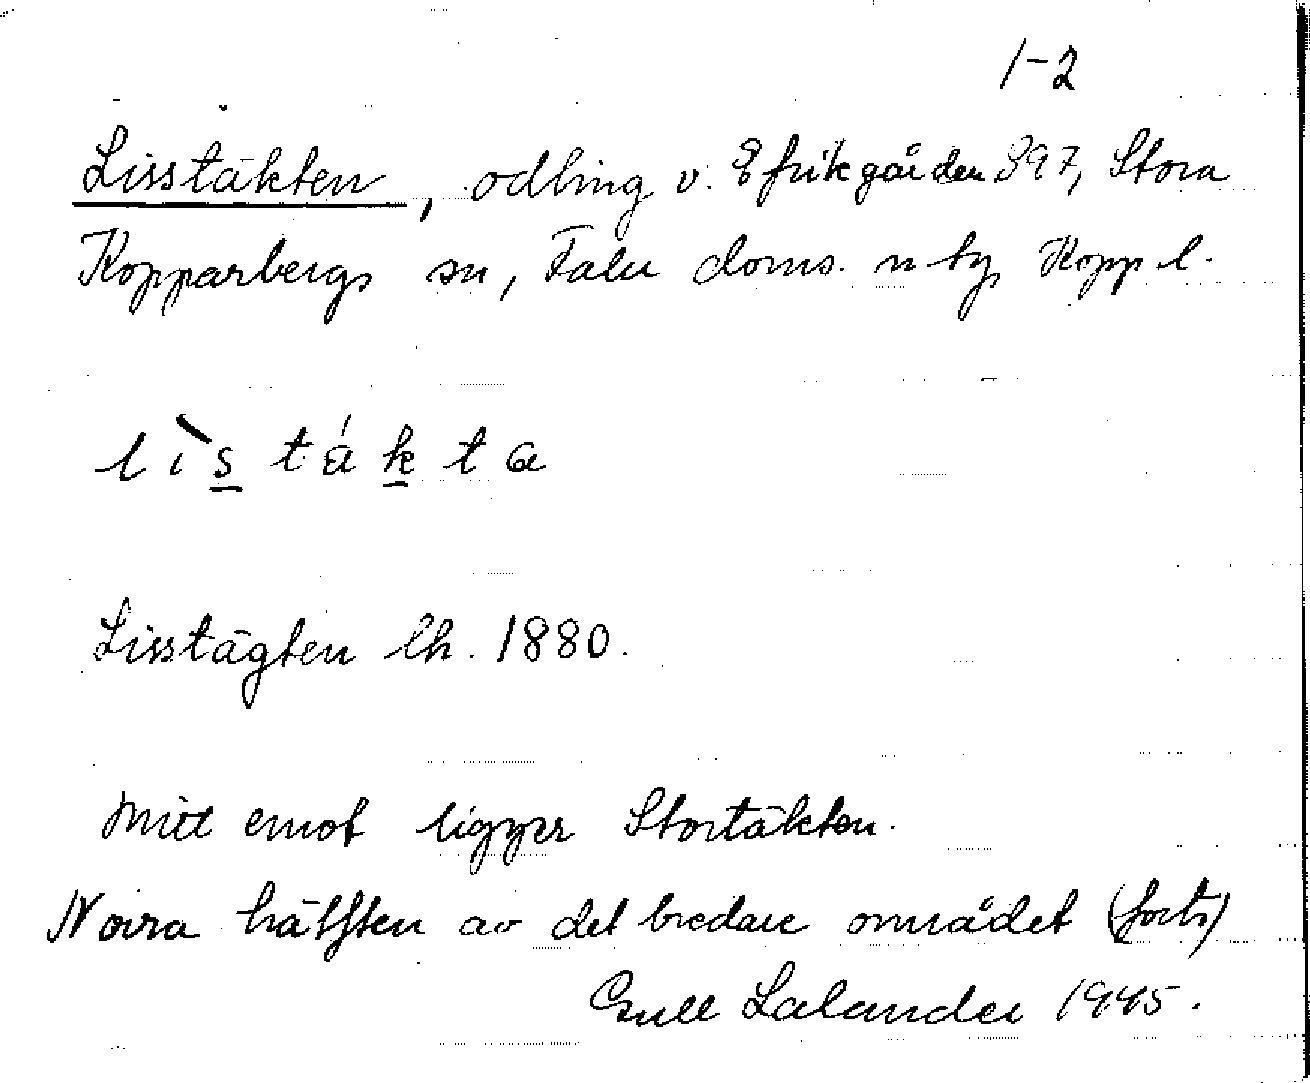 1-2
Lisstäkten, odling v. Efrikgården 397, Stora
Kopparbergs sn, Falu doms. n by, Kopp l.
lìs tä́k ta
Lisstägten lh. 1880.
Mitt emot ligger Stortäkten.
Norra hälften av det bredare området (forts)
Gull Lalander 1945.